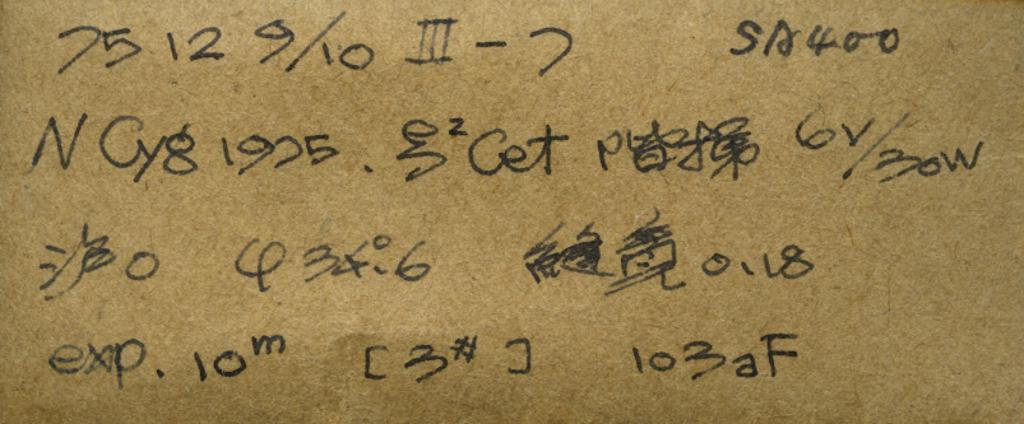 75 12 9/10 III - 7 SA400
N Cyg 1975. ξ² Cet 階梯 6V/30W
沙 0 φ 34°.6 縫宽 0.18
exp. 10ᵐ [3#] 103aF